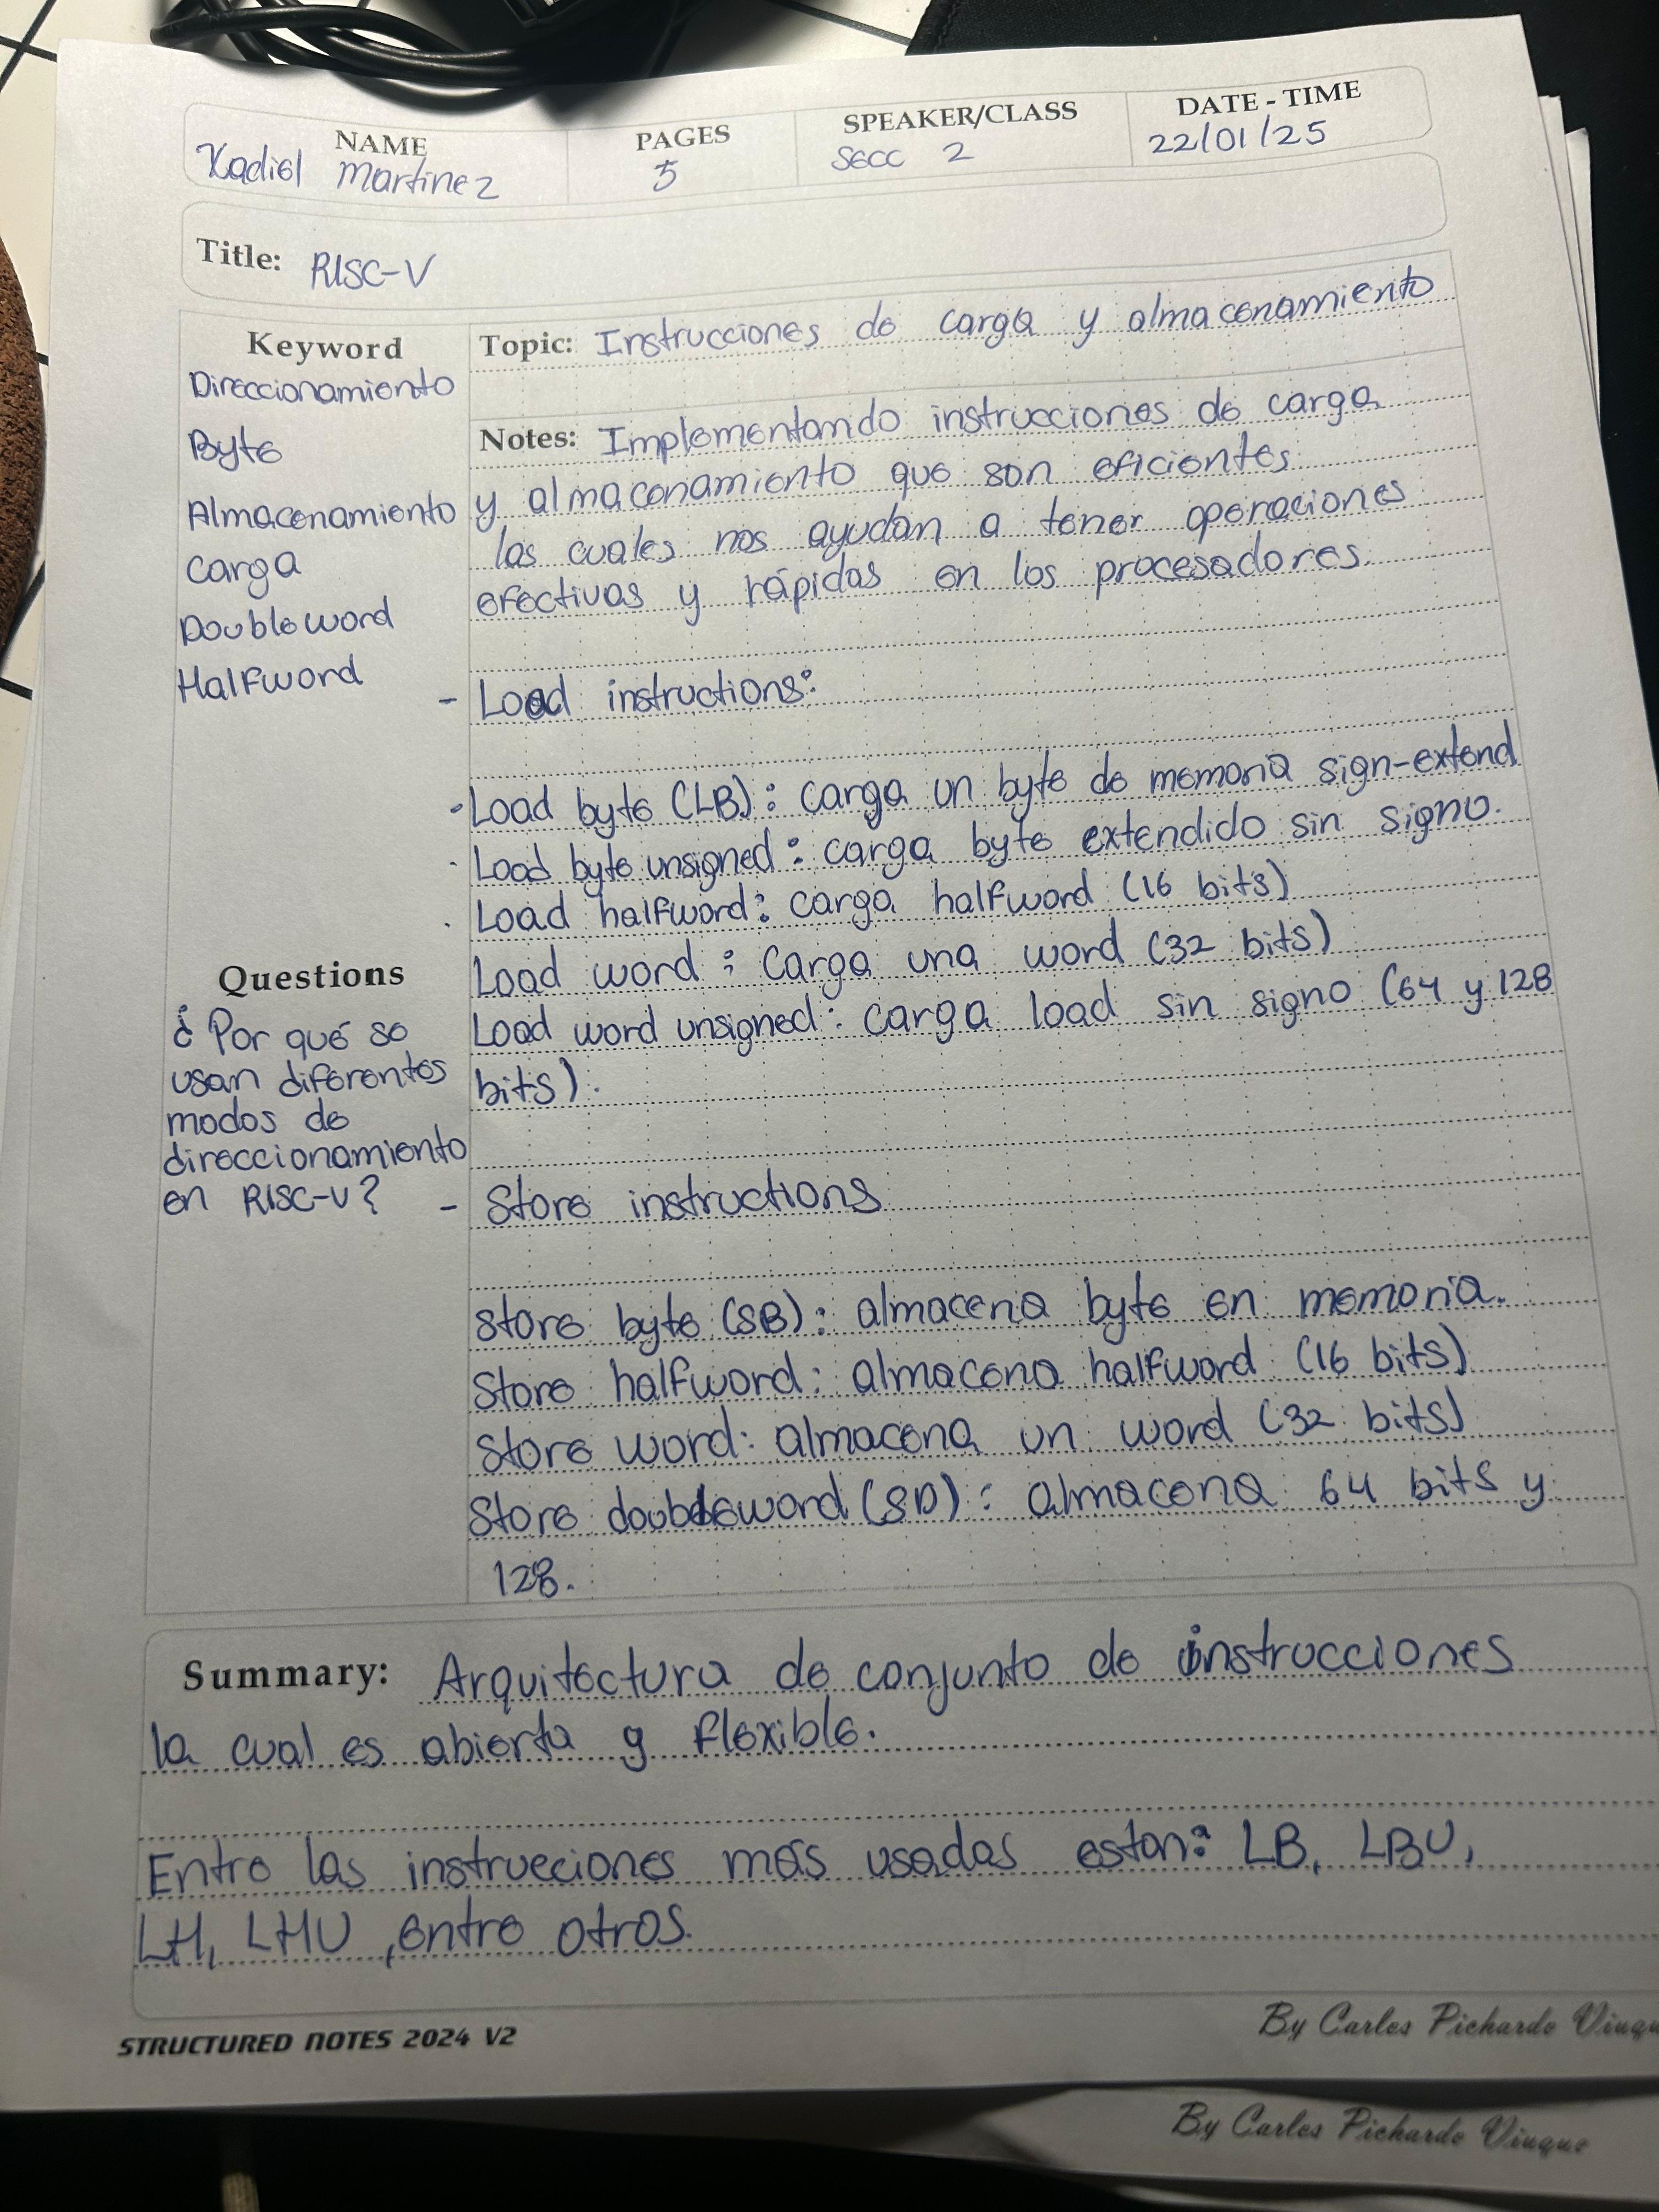 NAME
PAGES
SPEAKER/CLASS
DATE - TIME
Xadiel Martinez
5
Secc 2
22/01/25
Title: RISC-V
Keyword
Direccionamiento
Byte
Almacenamiento
Carga
Doubleword
Halfword
Questions
¿Por qué se
usan diferentes
modos de
direccionamiento
en RISC-V?
Topic: Instrucciones de carga y almacenamiento
Notes: Implementando instrucciones de carga
y almaconamiento que son eficientes
las cuales nos ayudan a tener operaciones
efectivas y rápidas en los procesadores.
- Load instructions:
· Load byte (LB): carga un byte de memoria sign-extend
· Load byte unsigned: carga byte extendido sin signo.
· Load halfword: carga halfword (16 bits)
Load word: carga una word (32 bits)
Load word unsigned: carga load sin signo (64 y 128
bits).
- Store instructions
Store byte (SB): almacena byte en memoria.
Store halfword: almacena halfword (16 bits)
Store word: almacena un word (32 bits)
Store doubleword (SD): almacena 64 bits y
128.
Summary: Arquitectura de conjunto de instrucciones
la cual es abierta y flexible.
Entre las instrucciones más usadas estan: LB, LBU,
LH, LHU, entre otros.
STRUCTURED NOTES 2024 V2
By Carlos Pichardo
By Carlos Pichardo Viuque